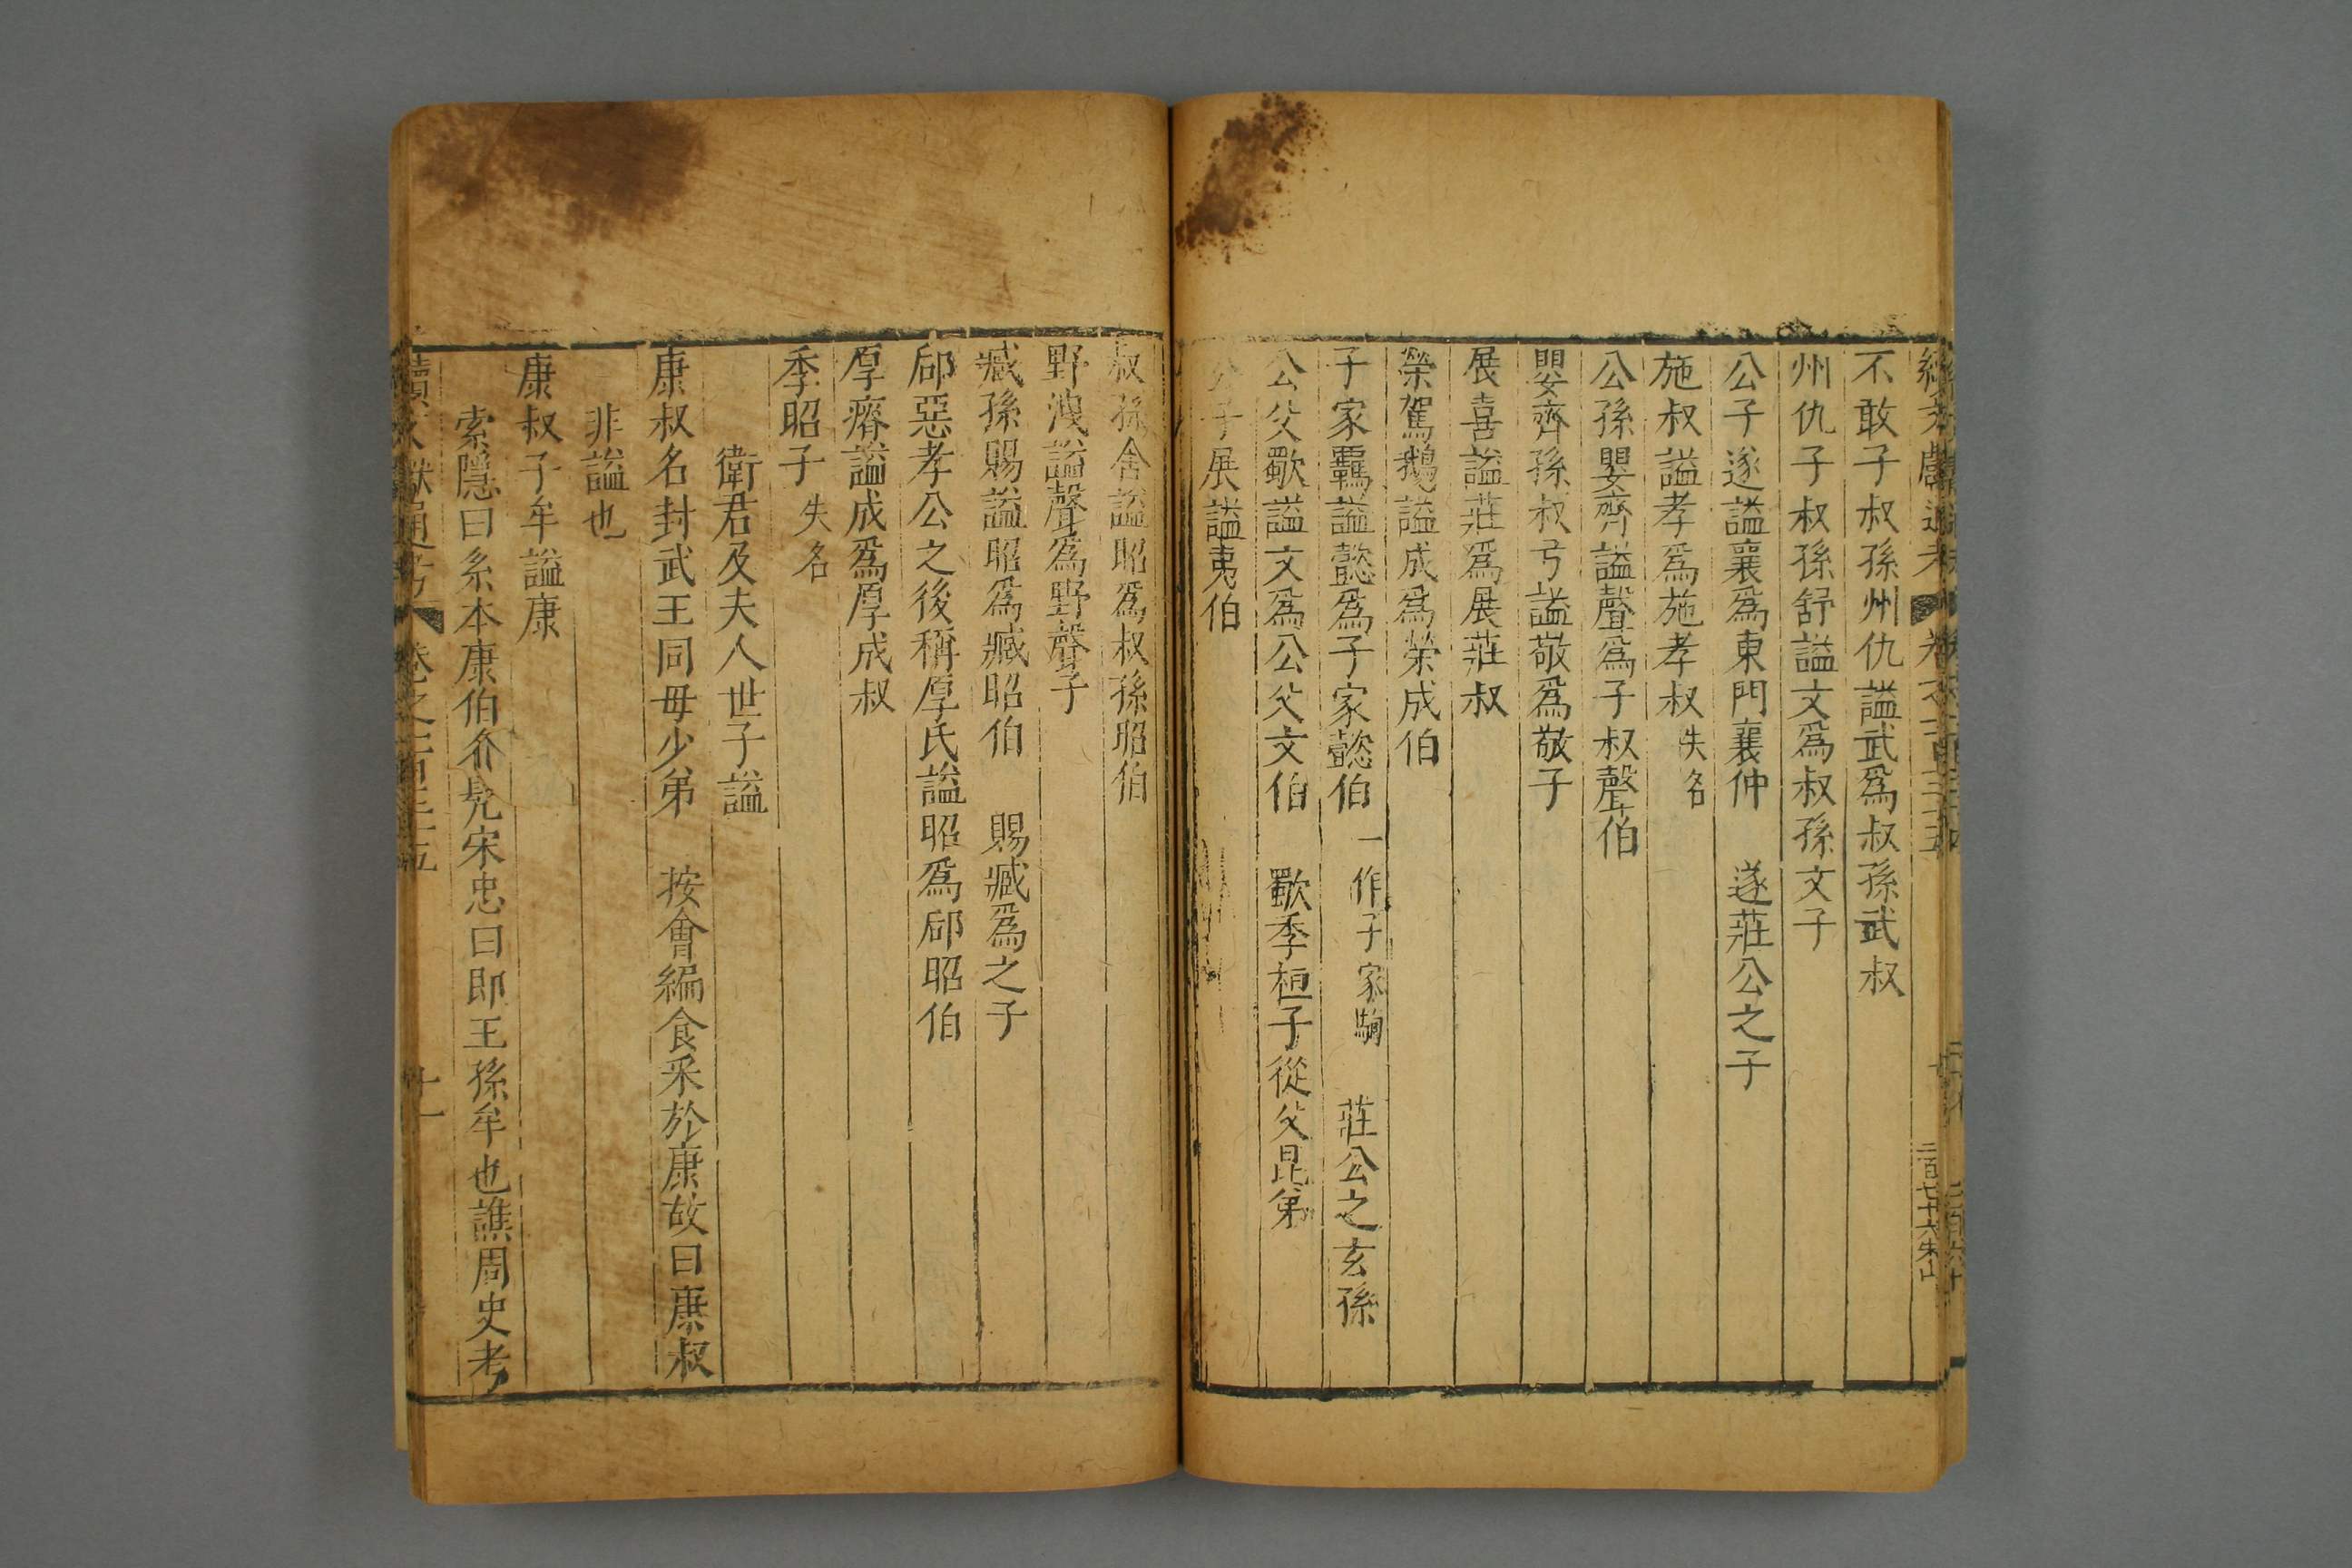 不敢子叔孫州仇謚武爲叔孫武叔
州仇子叔孫舒謚文爲叔孫文子
公子遂謚襄爲東門襄仲　遂莊公之子
施叔謚孝爲施孝叔失名
公孫嬰齊謚聲爲子叔聲伯
嬰齊孫叔弓謚敬爲敬子
展喜謚莊爲展莊叔
榮駕鵝謚成爲榮成伯
子家覊謚懿爲子家懿伯一作子家駒　莊公之玄孫
公父歜謚文爲公父文伯　歜季桓子從父昆弟
公子展謚夷伯
叔孫舍謚昭爲叔孫昭伯
野洩謚聲爲野聲子
臧孫賜謚昭爲臧昭伯　賜臧爲之子
郈惡孝公之後稱厚氏謚昭爲郈昭伯
厚瘠謚成爲厚成叔
季昭子失名
衛君及夫人世子謚
康叔名封武王同毋少弟　按會編食采於康故曰康叔
非謚也
康叔子牟謚康
索隱曰系本康伯名髡宋忠曰即王孫牟也譙周史考
續文獻通考　卷之二百三十五　十一